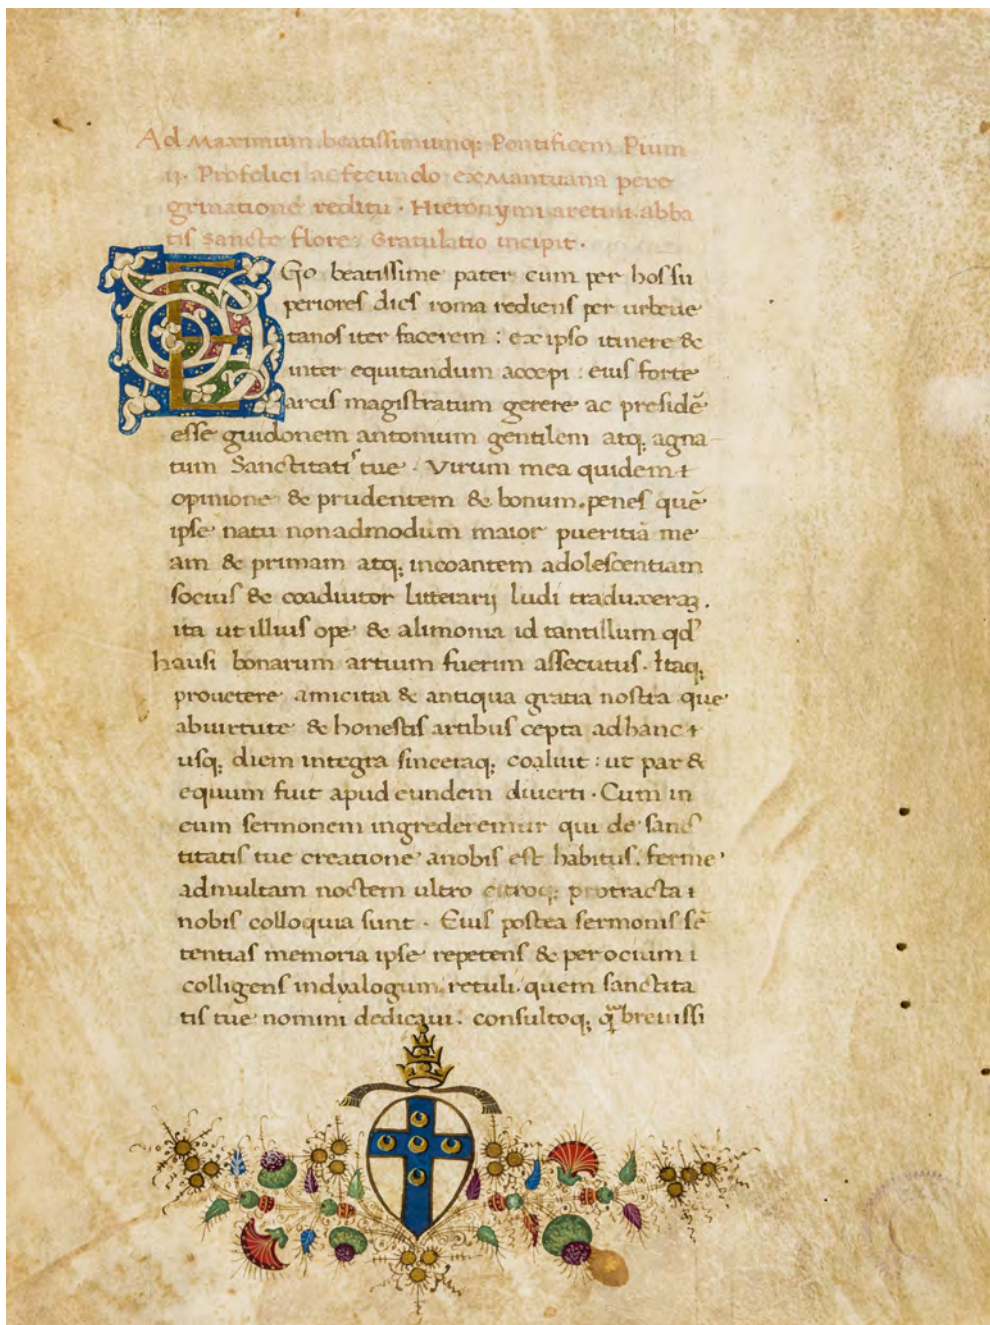 Ad Maximum beatissimumq; Pontificem Pium
ij. Profelici ac fecundo exMantuana pere
grinatione reditu. Hieronymi aretini. abba
tis sancte flore Gratulatio incipit.
EGo beatissime pater cum per hos su
periores dies roma rediens per urbeue
tanos iter facerem : ex ipso itinere &
inter equitandum accepi : eius forte
arcis magistratum gerere ac presidē
esse guidonem antonium gentilem atq; agna
tum Sanctitatis tue. Virum mea quidem
opinione & prudentem & bonum. penes quē
ipse natu nonadmodum maior pueritiā me
am & primam atq; incoantem adolescentiam
socius & coadiutor litterarij ludi traduxeraꝫ.
ita ut illius ope & alimonia id tantillum qd'
hausi bonarum artium fuerim assecutus. Itaq;
prouetere amicitia & antiqua gratia nostra que
abuirtute & honestis artibus cepta adhanc
usq; diem integra sinceraq; coaluit : ut par &
equum fuit apud eundem diuerti. Cum in
eum sermonem ingrederemur qui de sanc
titatis tue creatione anobis est habitus. ferme
admultam noctem ultro citroq; protracta
nobis colloquia sunt. Eius postea sermonis sē
tentias memoria ipse repetens & perocium
colligens indyalogum retuli. quem sanctita
tis tue nomini dedicaui. consultoq; q̄ breuissi